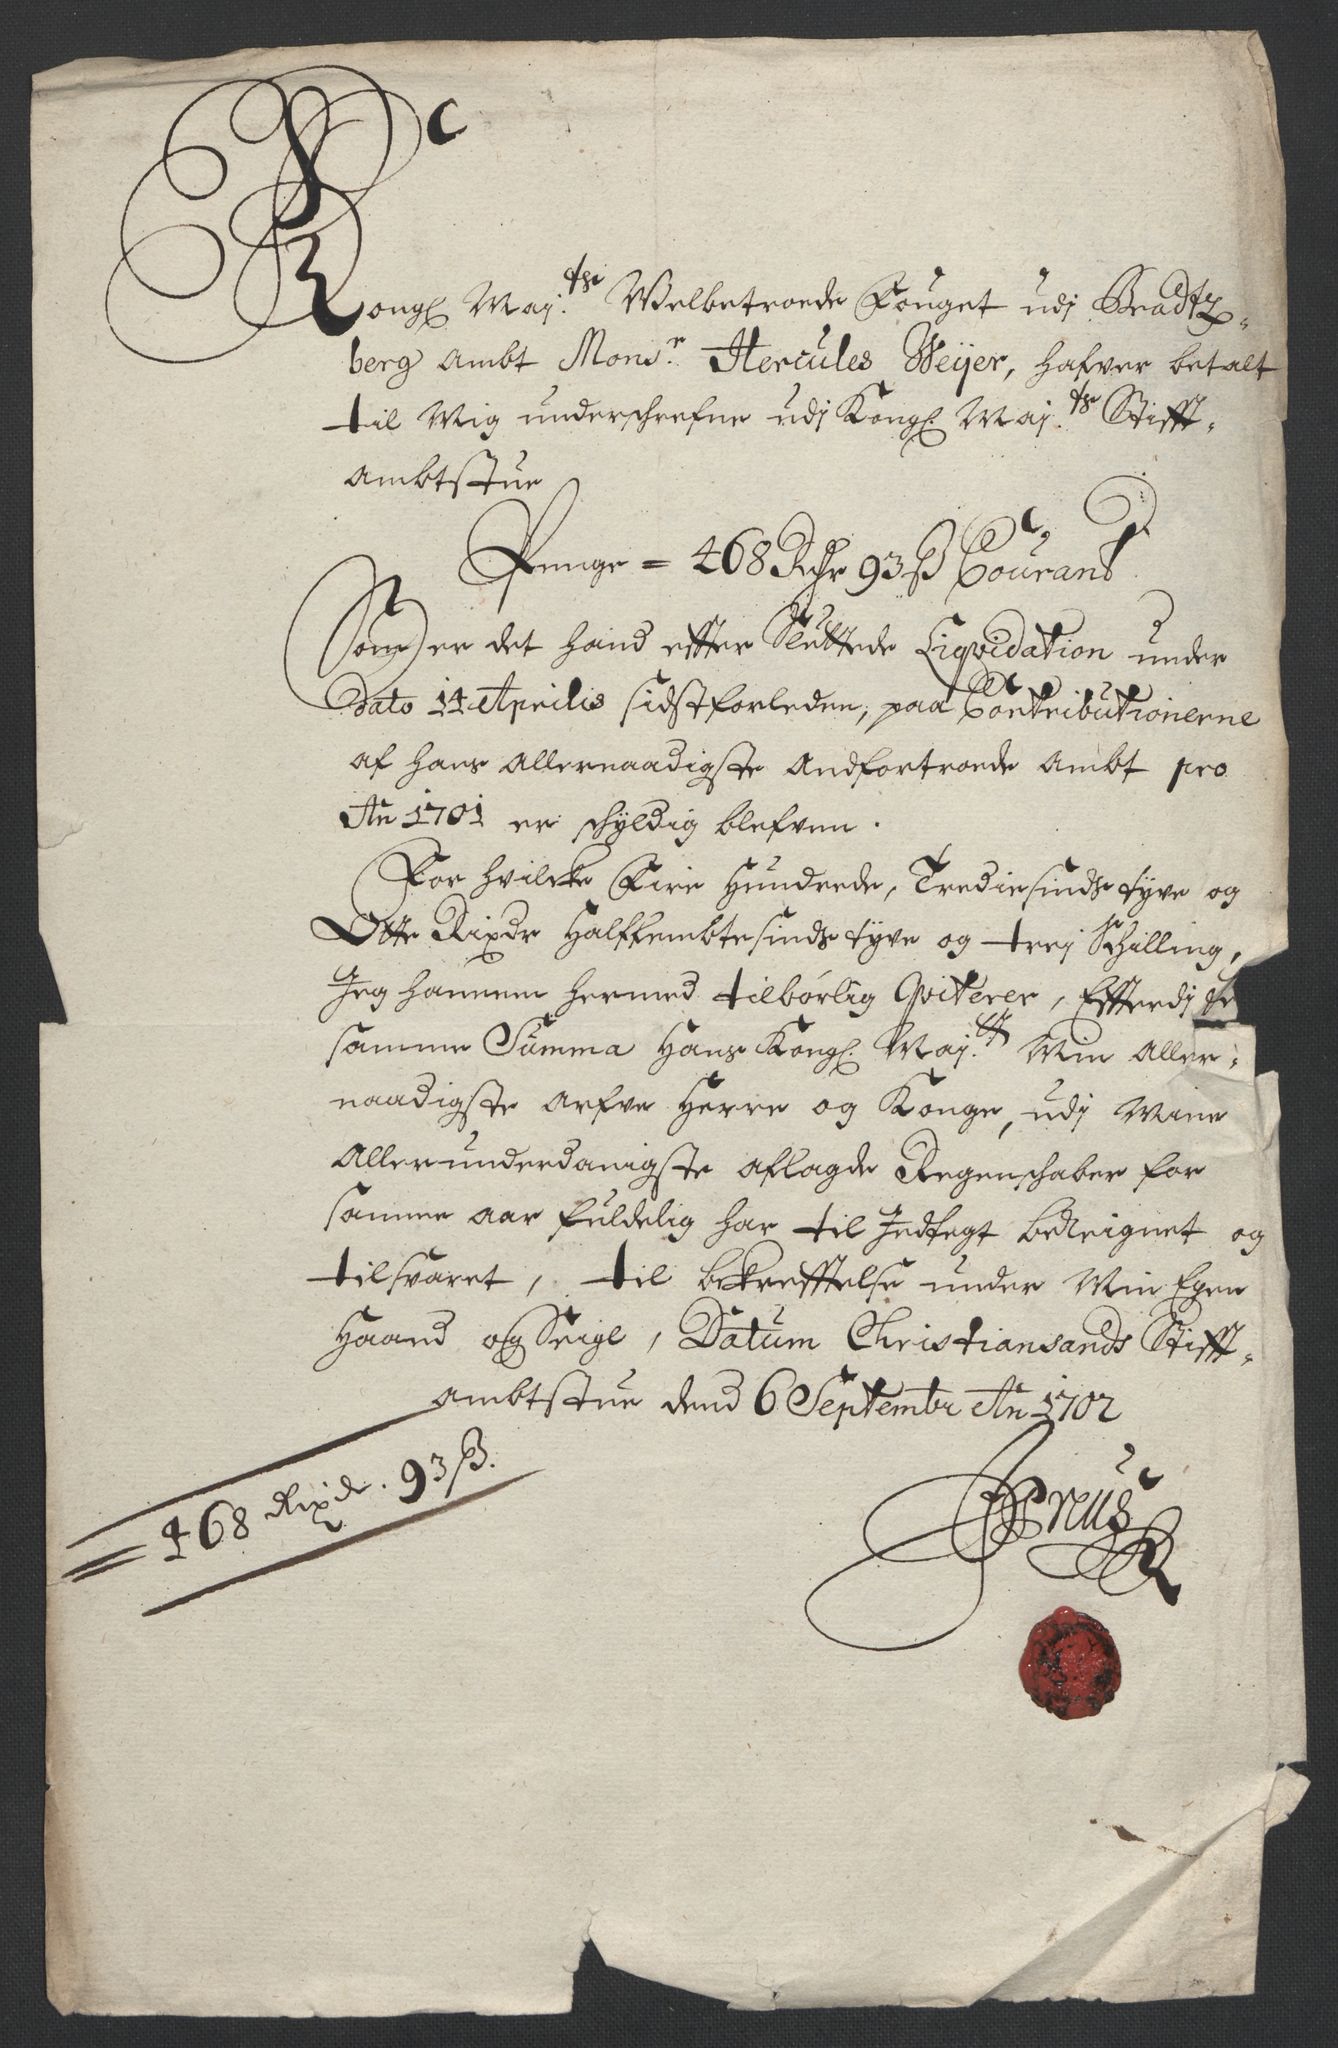 Kongl Maj.ts Welbetroede Fouget udj Bradtz-
berg Ambt Monsr. Hercules Weyer, hafver betalt
til Mig underschrefne udj Kongl. Maj.ts Stifft-
Ambtstue
Penge = 468 Rdr 93 ß Courant
Som er det hand effter Sluttede Liqvidation under
Dato 14 Aprilis sidstforleden, paa Contributionerne
af hans allernaadigste Andfortroede Ambt pro
An 1701 er schyldig blefven.
For hvilcke Fire Hundrede, Trediesinds tyve og
Otte Rixdr Halffembtesinds tyve og trej Schilling,
Jeg hannem hermed tilbørlig Qviterer, Efftердj de
samme Summa Hans Kongl. Maj.tt Min Aller-
naadigste Arfve Herre og Konge, udj Mine
Allerunderdanigste aflagde Regenschaber for
samme aar fuldelig har til Indtegt bereignet og
tilsvaret, til bekrefftelse under Min Egen
Haand og Seigl, Datum Christiansands Stifft-
Ambtstue dend 6 Septembr An 1702
468 Rixdr. 93 ß.
Preus